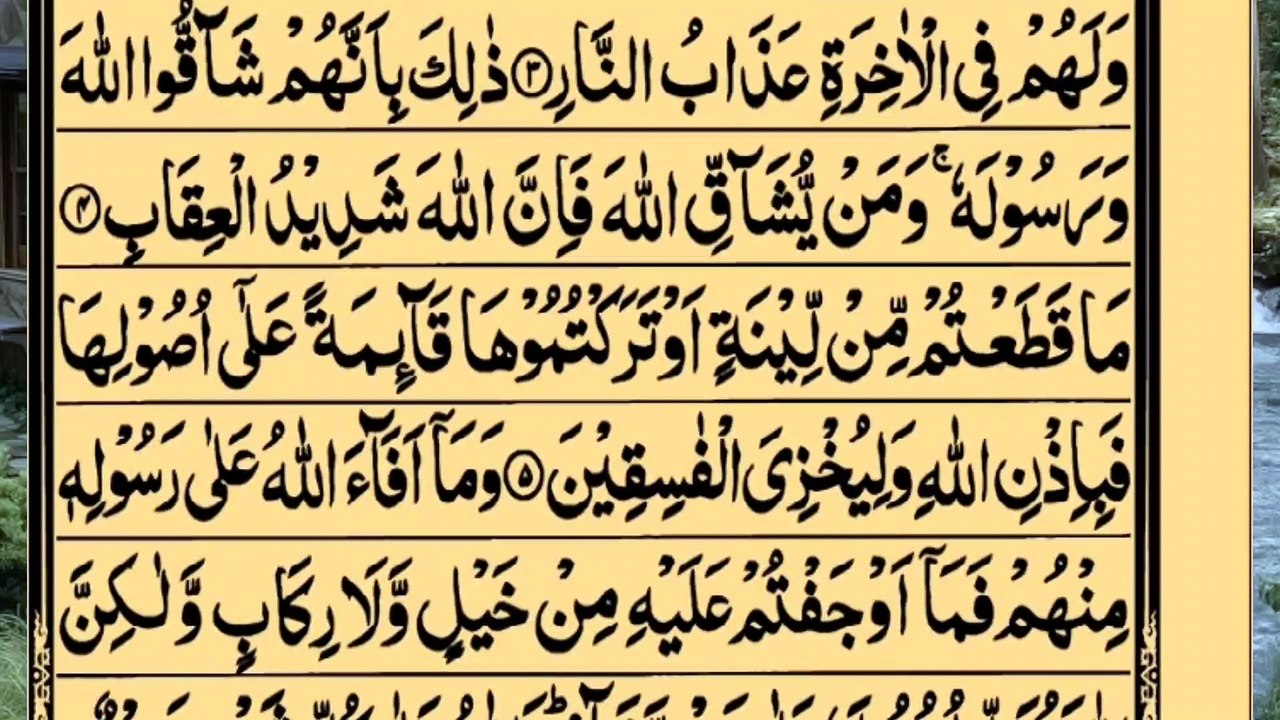 وَلَهُمْ فِی الْاٰخِرَةِ عَذَابُ النَّارِ ﴿۳﴾ ذٰلِكَ بِاَنَّهُمْ شَآقُّوا اللّٰهَ
وَرَسُوْلَهٗ ۚ وَمَنْ یُّشَآقِّ اللّٰهَ فَاِنَّ اللّٰهَ شَدِیْدُ الْعِقَابِ ﴿۴﴾
مَا قَطَعْتُمْ مِّنْ لِّیْنَةٍ اَوْ تَرَكْتُمُوْهَا قَآئِمَةً عَلٰۤی اُصُوْلِهَا
فَبِاِذْنِ اللّٰهِ وَلِیُخْزِیَ الْفٰسِقِیْنَ ﴿۵﴾ وَمَاۤ اَفَآءَ اللّٰهُ عَلٰی رَسُوْلِهٖ
مِنْهُمْ فَمَاۤ اَوْجَفْتُمْ عَلَیْهِ مِنْ خَیْلٍ وَّلَا رِكَابٍ وَّلٰكِنَّ